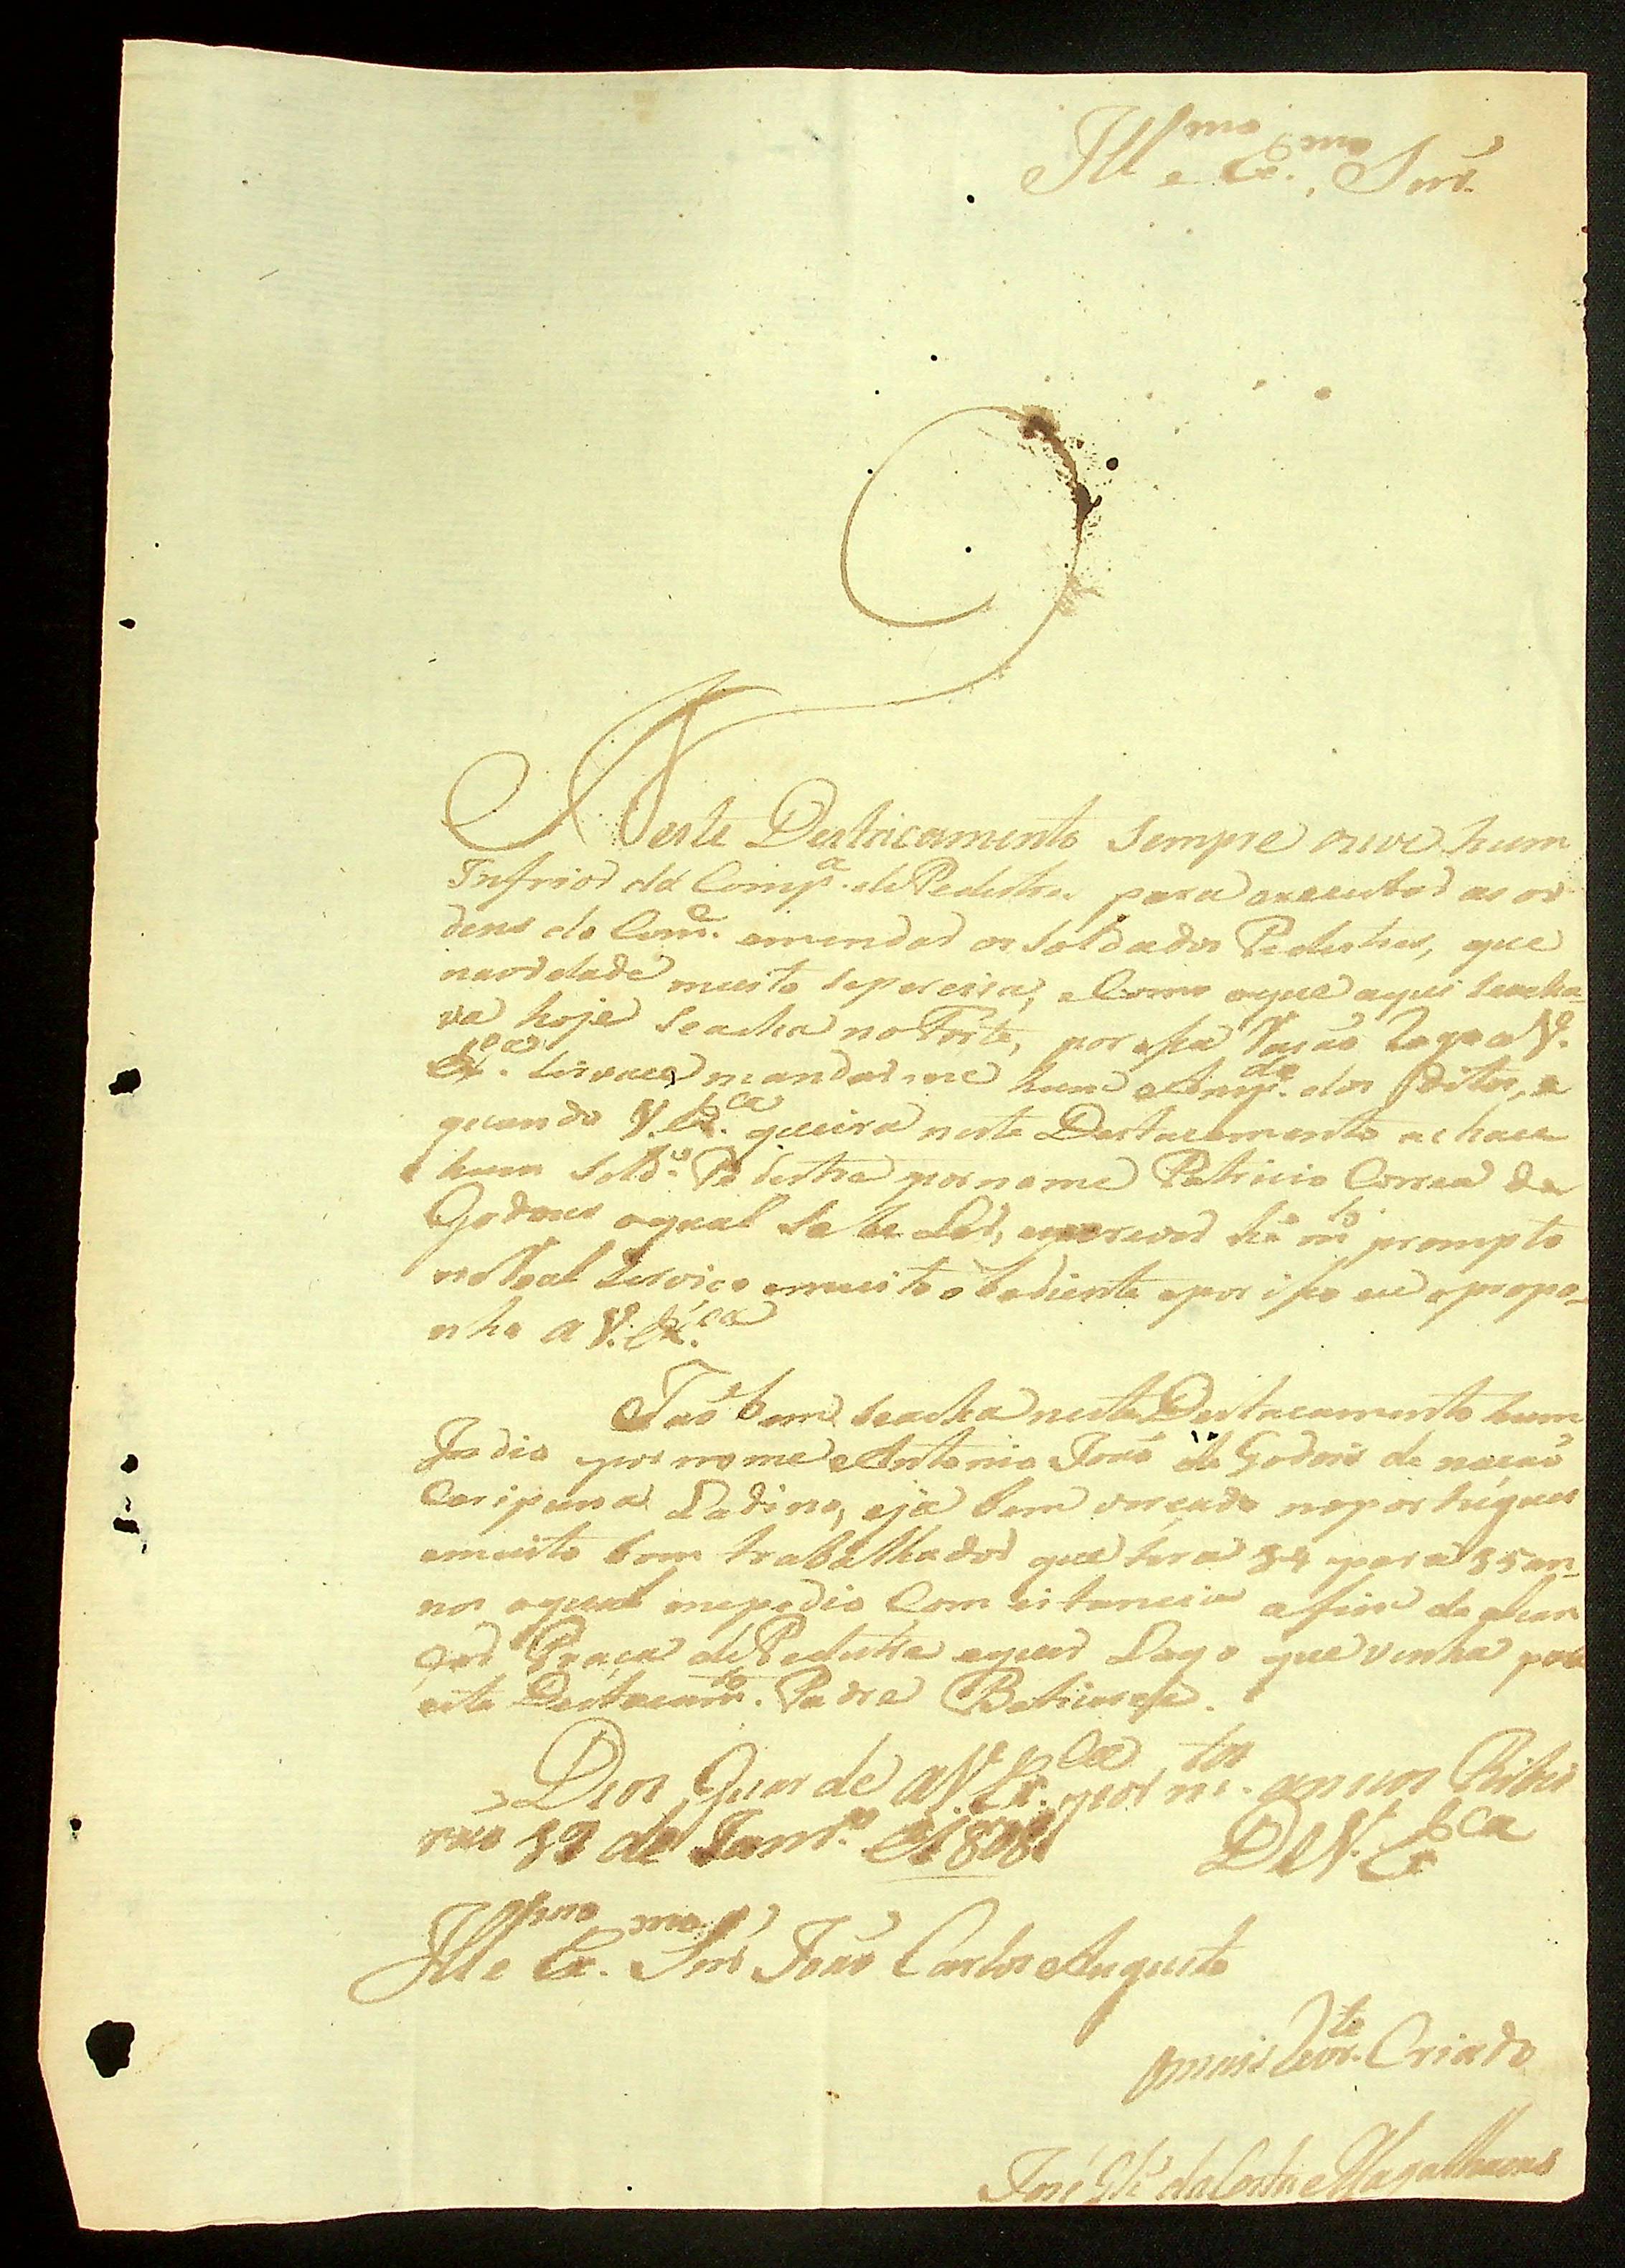 Ill.mo e Ex.mo Snr.
Neste Destacamento sempre ouve hum
Infrior da Comp.a de Pedestres para executar as or
dens do Com.e emendar os soldados Pedestres, que
naverdade muito sepercisa, e Como oque aqui seacha-
va hoje seacha no Forte, por essa Razaõ Rogo a V.
Ex.ca sirvace mandarme hum
quando V. Ex.ca queira neste Destacamento achace
hum Sold.o Pedestre por nome Patricio Correa de
Godoes oqual sabe Ler, escrever he m.to prompto
no Real Serviço emuito obediente epor isso eu opropo-
nho a V. Ex.ca
Taõ bem seacha neste Destacamento hum
Indio por nome Antonio Joaõ de Godois de naçaõ
Caripuna Ladino, eja bem versado noportugues
emuito bom trabalhador que tera 34 para 35 an-
nos oqual mepedio Com istancia afim de alcan
çar Praça de Pedestre Logo que vinha para
este Destacam.to Padre
Deos Guarde a V. Ex.ca por m.tos annos Ribei
raõ 19 de Janr.o de 1808
De V. Ex.ca
Ill.mo e Ex.mo Snr. Joaõ Carlos Augusto
Omais Rev.te Criado
José da Costa Magalhaens